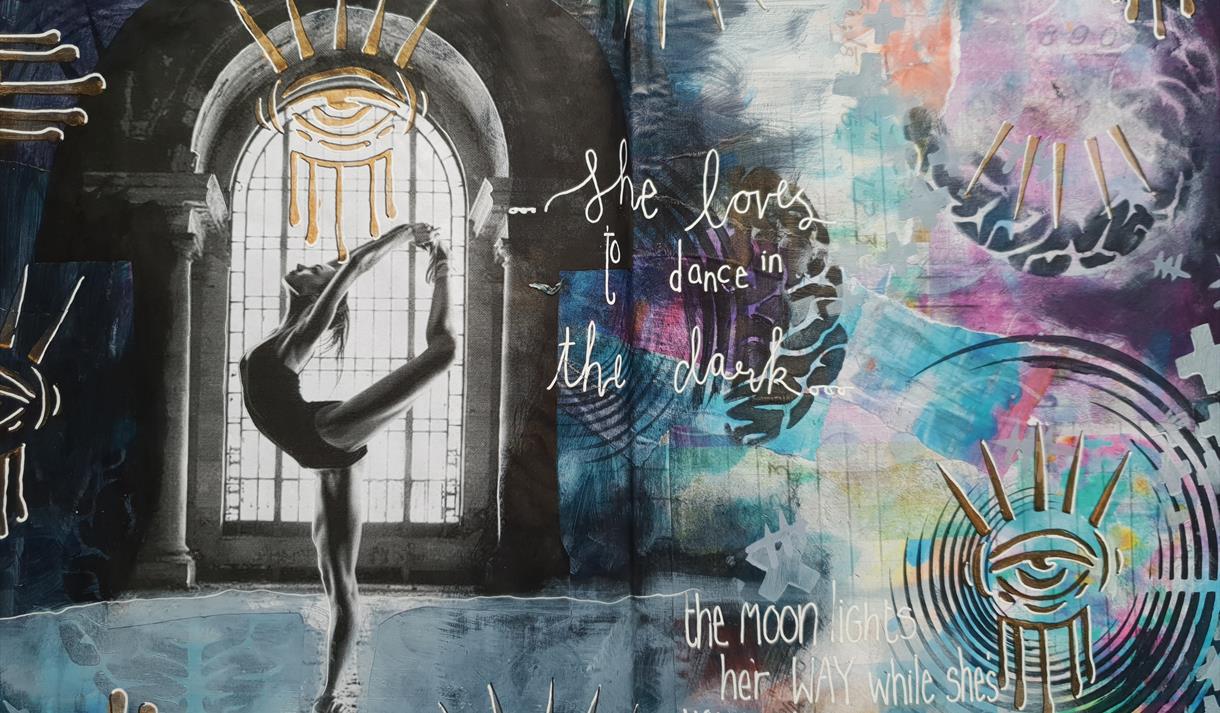 ...she loves
to
dance in
the dark...
890
the moon lights
her WAY while she's